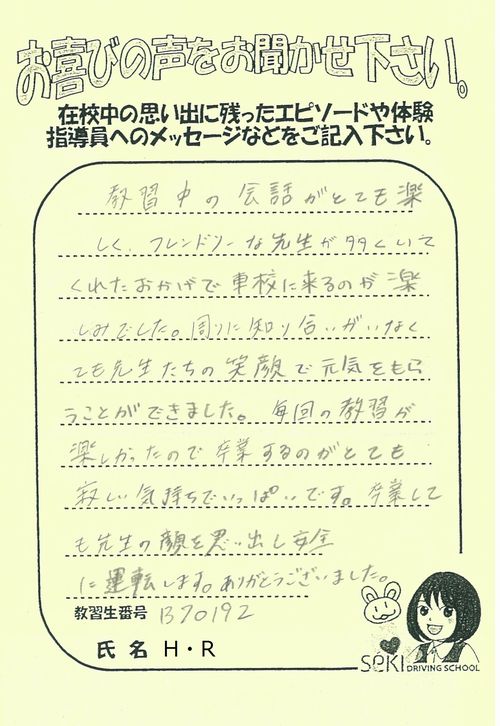 お喜びの声をお聞かせ下さい。
在校中の思い出に残ったエピソードや体験
指導員へのメッセージなどをご記入下さい。
教習中の会話がとても楽
しく、フレンドリーな先生が多くいて
くれたおかげで車校に来るのが楽
しみでした。周りに知り合いがいなく
ても先生たちの笑顔で元気をもら
うことができました。毎回の教習が
楽しかったので卒業するのがとても
寂しい気持ちでいっぱいです。卒業して
も先生の顔を思い出し安全
に運転します。ありがとうございました。
教習生番号 B70192
氏名 H・R
SEKI DRIVING SCHOOL